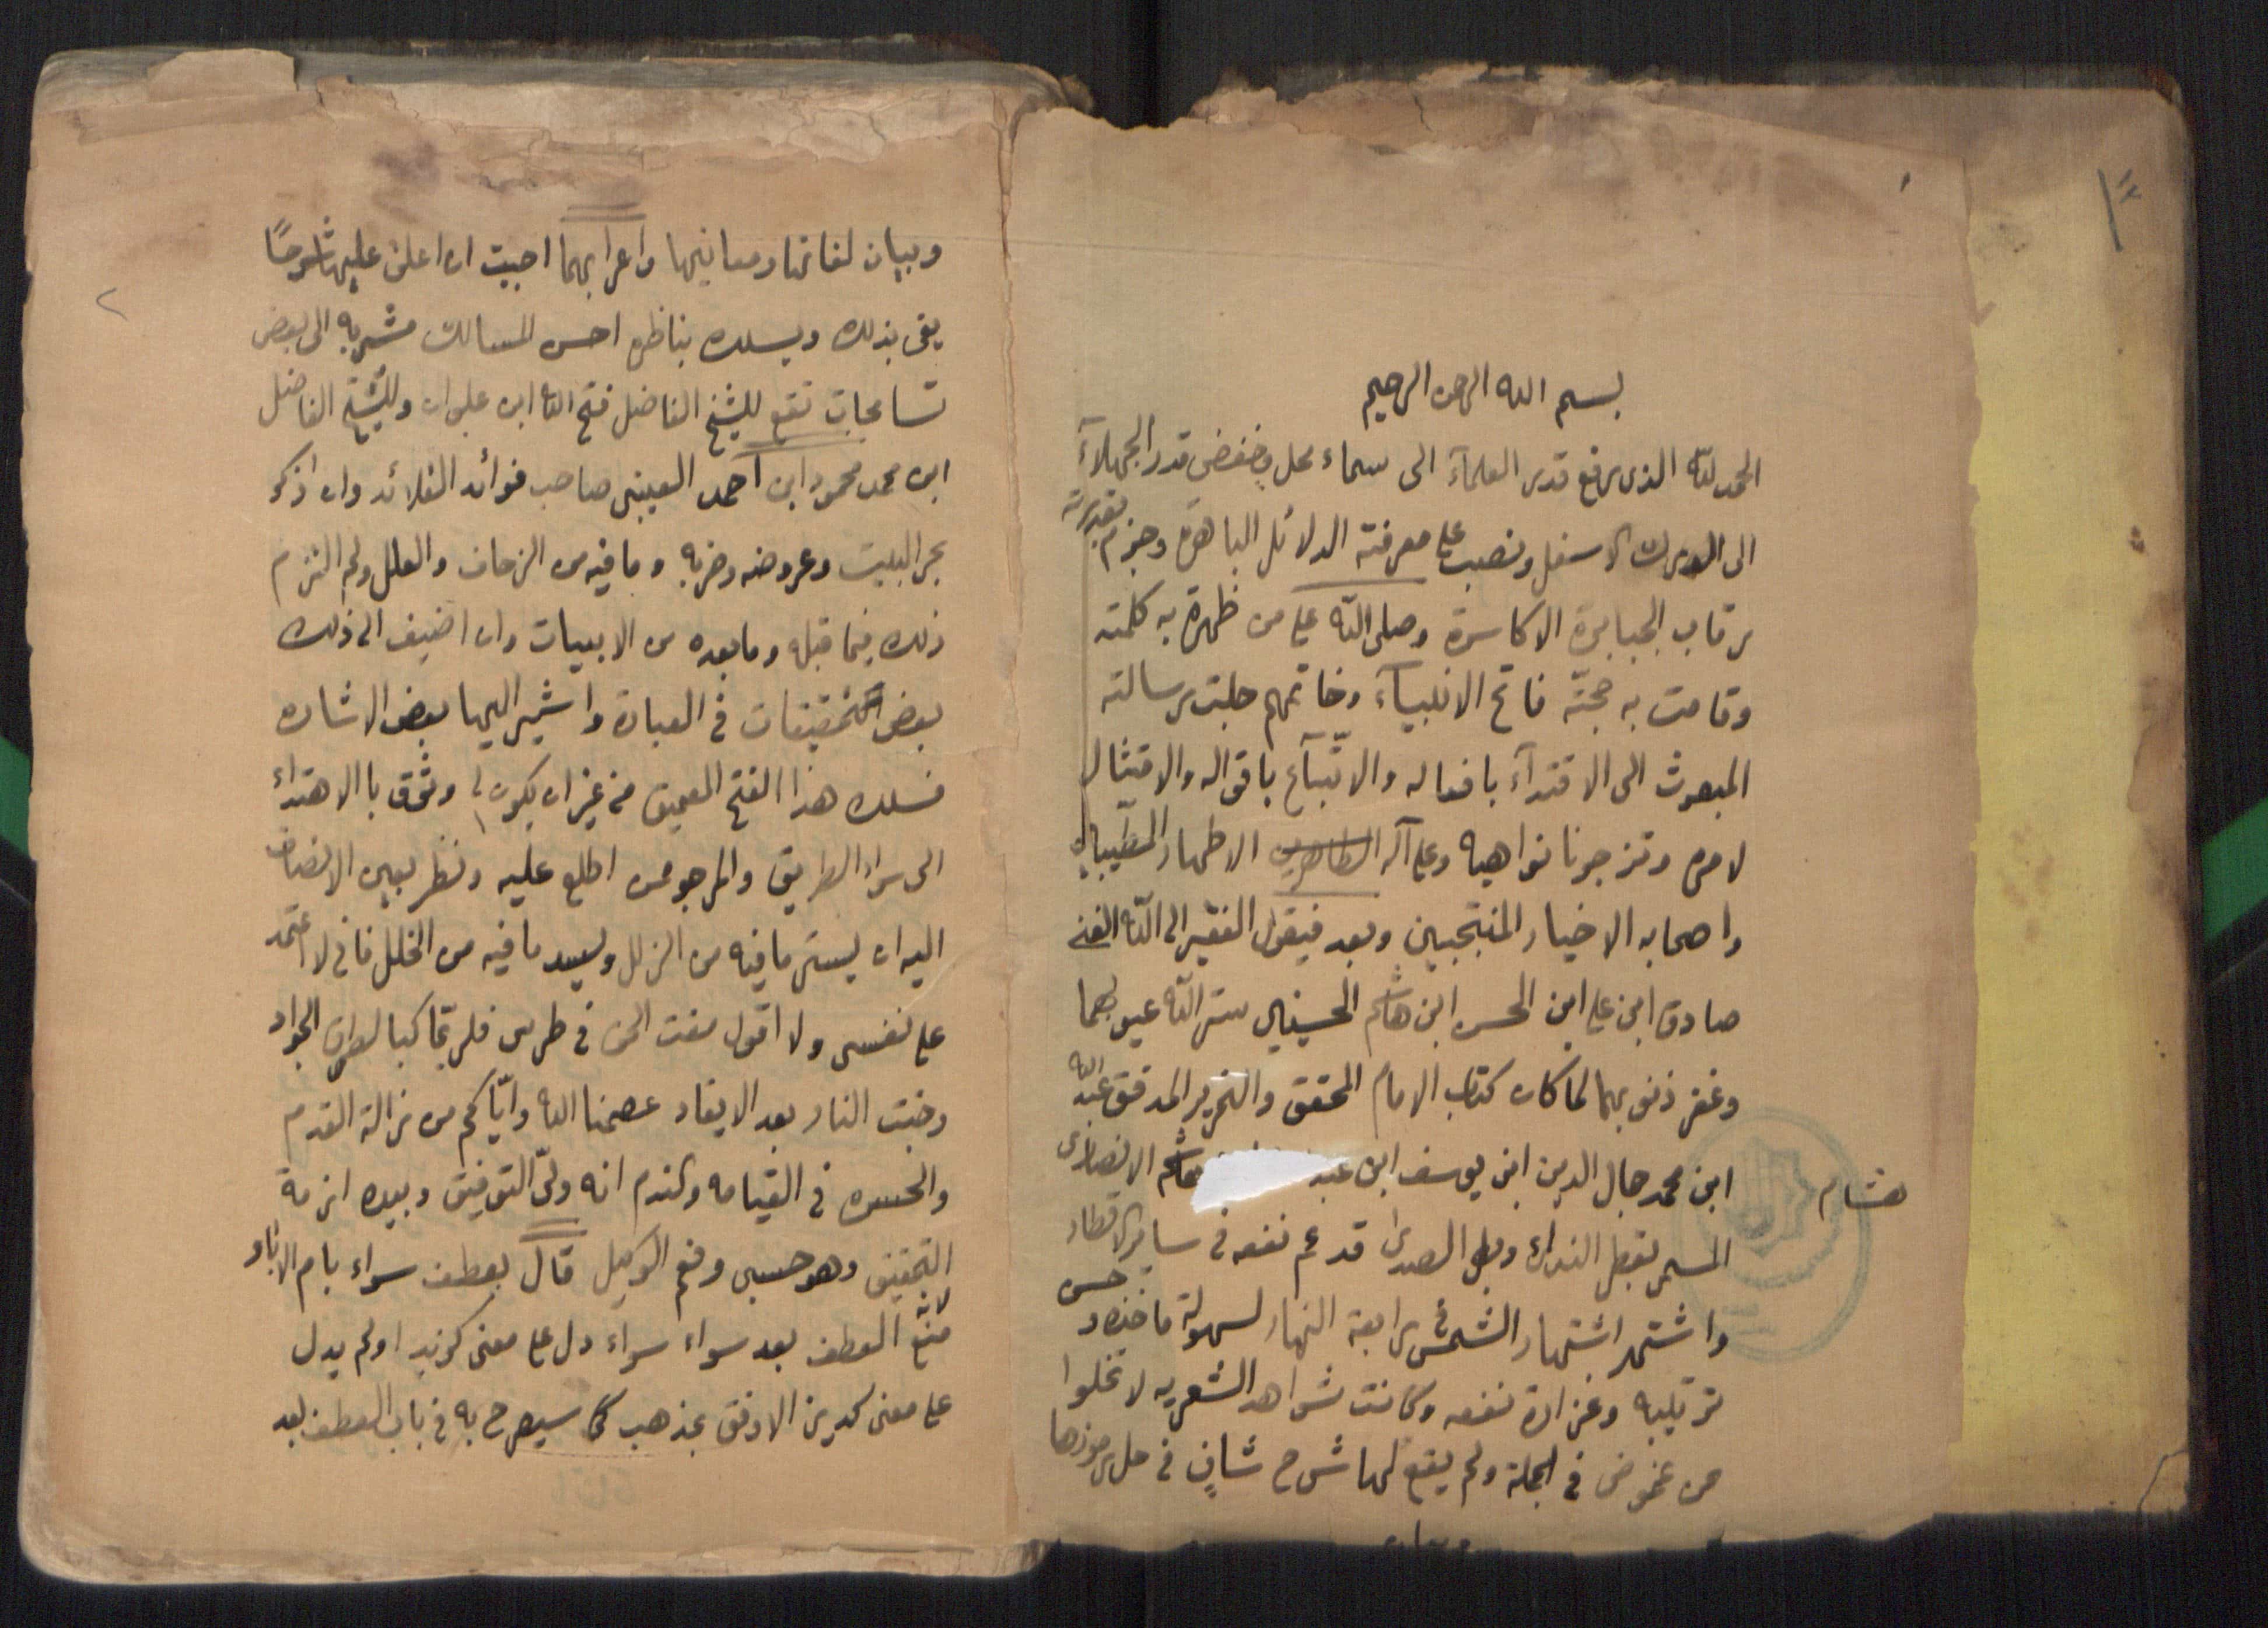 بسم الله الرحمن الرحيم
الحمد لله الذى رفع قدر العلمآء الى سماء محل وخفض قدر الجهلآء
الى الدرك الاسفل ونصب على معرفته الدلائل الباهرة وجزم بقدرته
رقاب الجبابرة الاكاسرة وصلى الله على من ظهرة به كلمته
وقامت به حجته فاتح الانبيآء وخاتمهم حلبت رسالته
المبعوث الى الاقتدآء بافعاله والاتباع باقواله والامتثال
لامره وتزجرنا نواهيه وعلى آله الاطهار المطيبين
واصحابه الاخيار المنتجبين وبعد فيقول الفقير الى الله الغنى
صادق ابن على ابن الحسن ابن هاشم الحسينى ستر الله عيوبهما
وغفر ذنوبهما لما كان كتاب الامام المحقق والنحرير المدقق عبد الله
ابن محمد جمال الدين ابن يوسف ابن عبد هشام الانصارى
هشام
المسمى بقطر النداى وبل الصداى قد عم نفعه فى ساير الاقطار
واشتهر اشتهار الشمس فى رابعة النهار لسهولة ماخذه وحسن
ترتيبه وغزارة نفعه وكانت شواهد الشعريه لا تخلوا
من غموض فى الجملة ولم يقع لها شرح شافٍ فى حل رموزها
وبيان
وبيان لغاتها ومعانيها واعرابهما احببت ان اعلق عليها شرحًا
يفى بذلك ويسلك بناظره احسن المسالك مشيربه الى بعض
تسامحات تقع للشيخ الفاضل فتح الله ابن علوان وللشيخ الفاضل
ابن محمد محمود ابن احمد العينى صاحب فوائد القلائد وان اذكر
بحر البيت وعروضه وضربه وما فيه من الزحاف والعلل ولم التزم
ذلك فيما قبله وما بعده من الابيات وان اضيف الى ذلك
بعض التحقيقات فى العبادة واشير اليها بعض الاشاره
فسلك هذا الفتح العميق من غير ان يكون لى وثوق با الاهتداء
الى سواء الطريق والمرجو ممن اطلع عليه ونظر بعين الانصاف
اليه ان يستر ما فيه من الزلل ويسد ما فيه من الخلل فانى لا اعتمد
على نفسى ولا اقول سقت الحق فى طرس فلربما كبا الجواد
وخبت النار بعد الايقاد عصمنا الله واياكم من زالة القدم
والحسره فى القيامه والندم انه ولىّ التوفيق وبيده ازمة
التحقيق وهو حسبى ونعم الوكيل قال بعطف سواء بام الا
لانه منع العطف بعد سواء سواء دل على معنى كزيد اولم يدل
على معنى كدين الاوفق بمذهب كما سيصرح به فى باب العطف بعد